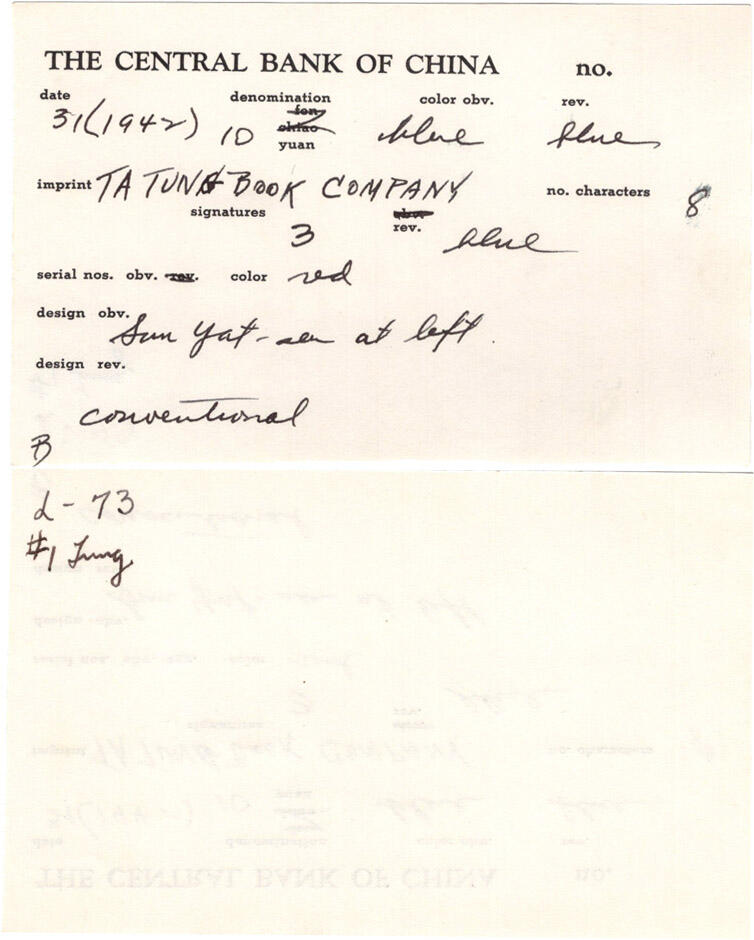 THE CENTRAL BANK OF CHINA no.
date denomination color obv. rev.
31(1942) 10 fen chiao yuan blue blue
imprint TA TUNG BOOK COMPANY no. characters 8
signatures 3 obv. rev. blue
serial nos. obv. rev. color red
design obv.
Sun Yat-sen at left.
design rev.
conventional
B
L-73
#1 Tung